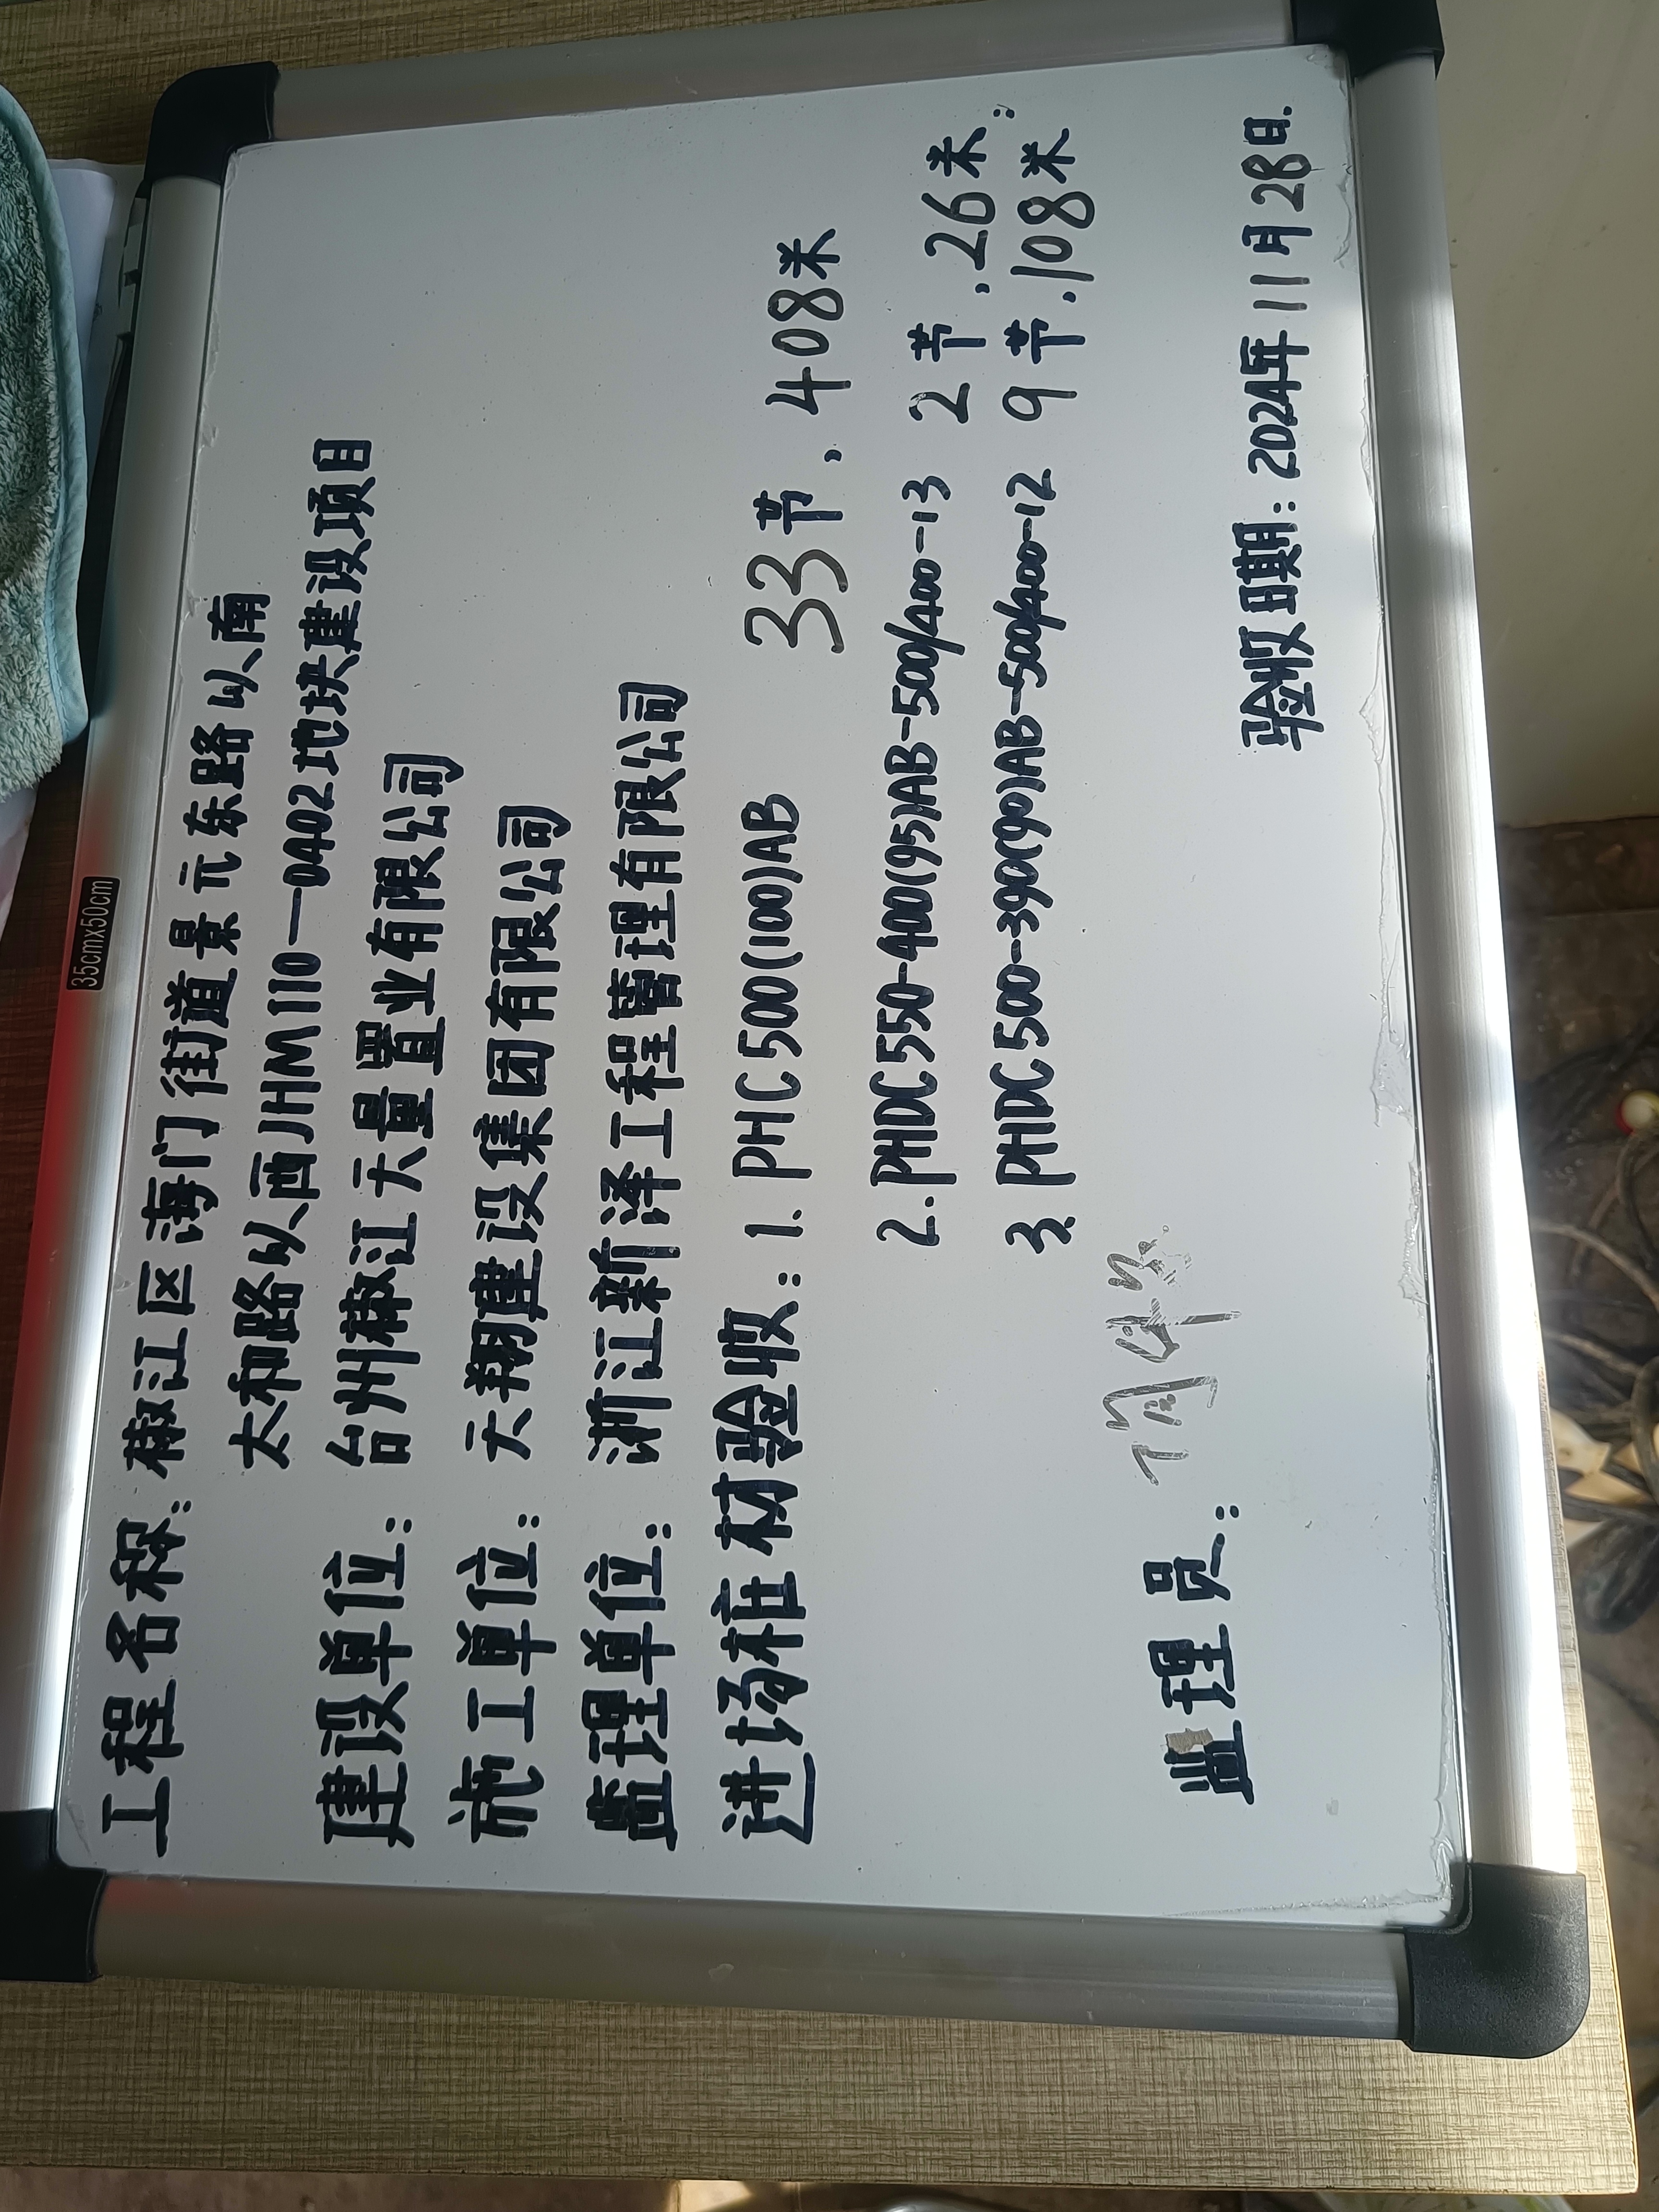 35cmx50cm
工程名称：椒江区海门街道景元东路以南
太和路以西JHM110—0402地块建设项目
建设单位：台州椒江天量置业有限公司
施工单位：天翔建设集团有限公司
监理单位：浙江新泽工程管理有限公司
进场桩材验收：1. PHC500(100)AB 33节，408米
2. PHDC550-400(95)AB-500/400-13 2节，26米；
3. PHDC500-390(90)AB-500/400-12 9节，108米
监理员：
验收日期：2024年11月28日.